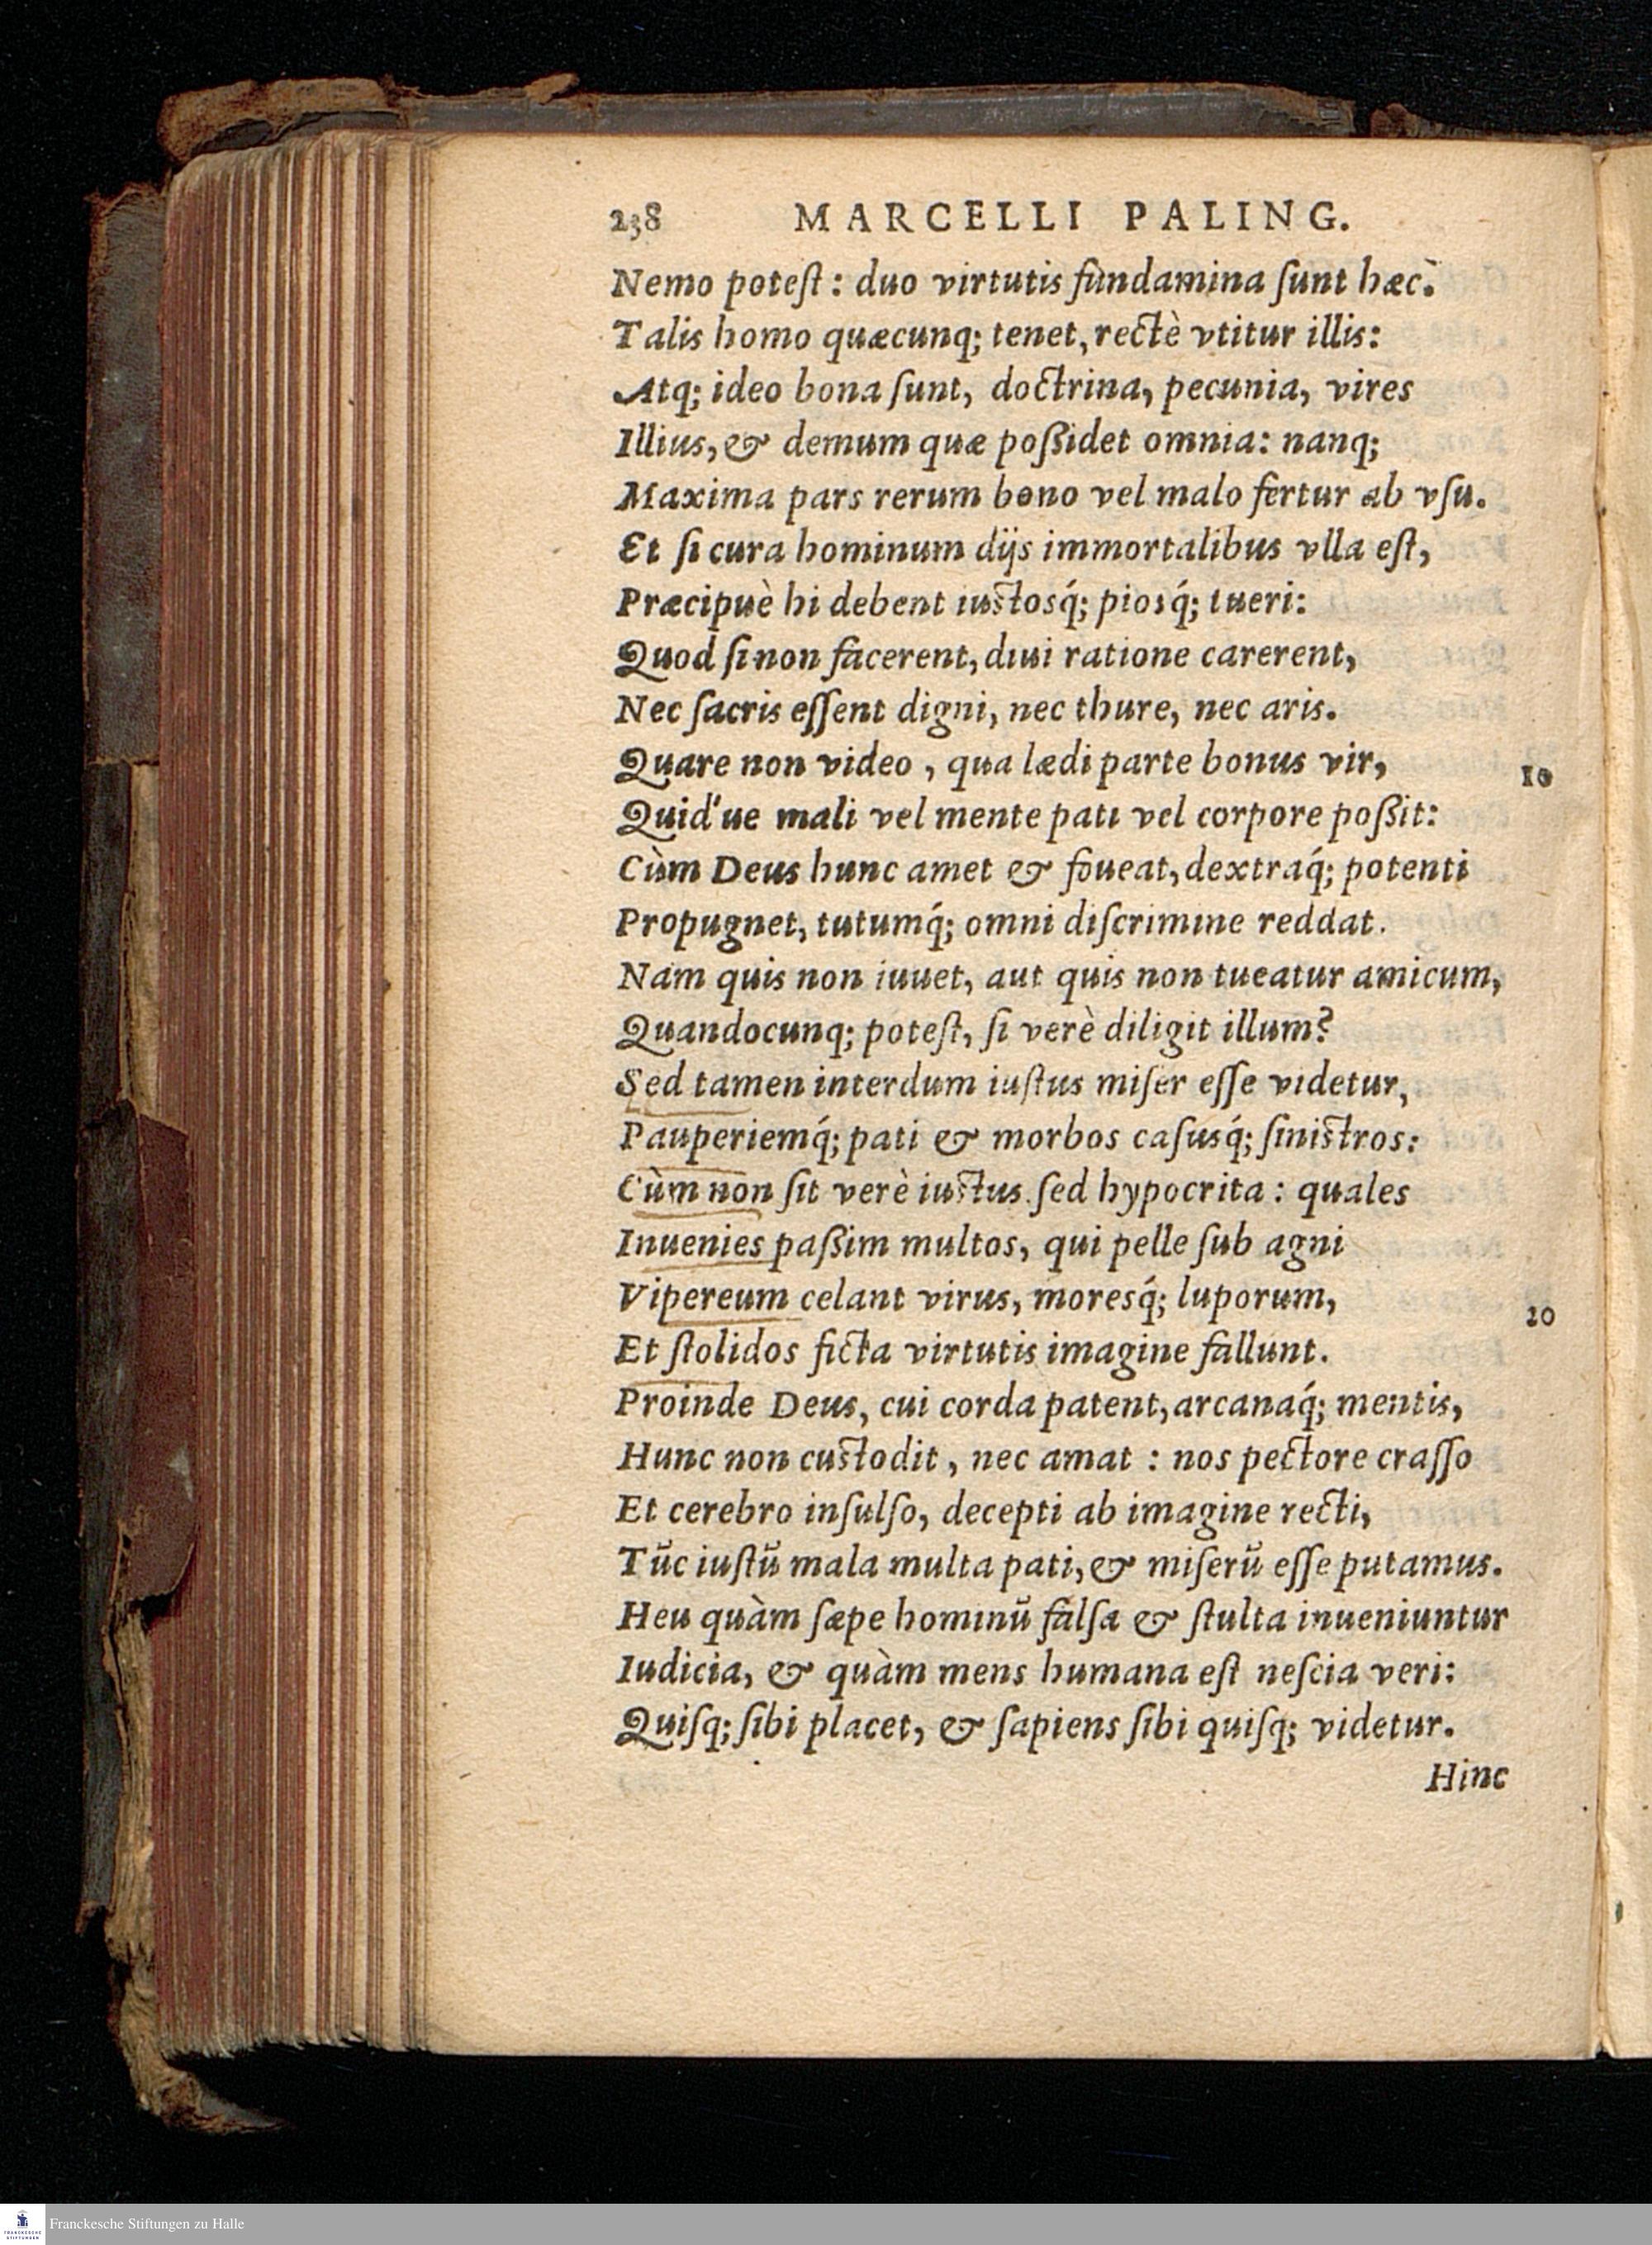 238 MARCELLI PALING.
Nemo poteſt: duo virtutis fundamina ſunt hæc.
Talis homo quæcunq; tenet, rectè vtitur illis:
Atq; ideo bona ſunt, doctrina, pecunia, vires
Illius, & demum quæ poßidet omnia: nanq;
Maxima pars rerum bono vel malo fertur ab vſu.
Et ſi cura hominum dijs immortalibus vlla eſt,
Præcipuè hi debent iustosq́; piosq́; tueri:
Quod ſi non facerent, diui ratione carerent,
Nec ſacris eſſent digni, nec thure, nec aris.
Quare non video, qua lædi parte bonus vir, 10
Quid'ue mali vel mente pati vel corpore poßit:
Cùm Deus hunc amet & foueat, dextraq́; potenti
Propugnet, tutumq́; omni diſcrimine reddat.
Nam quis non iuuet, aut quis non tueatur amicum,
Quandocunq; poteſt, ſi verè diligit illum?
Sed tamen interdum iuſtus miſer eſſe videtur,
Pauperiemq́; pati & morbos caſusq́; ſinistros:
Cùm non ſit verè iustus. ſed hypocrita: quales
Inuenies paßim multos, qui pelle ſub agni
Vipereum celant virus, moresq́; luporum, 20
Et ſtolidos ficta virtutis imagine fallunt.
Proinde Deus, cui corda patent, arcanaq́; mentis,
Hunc non custodit, nec amat: nos pectore craſſo
Et cerebro inſulſo, decepti ab imagine recti,
Tūc iuſtū mala multa pati, & miſerū eſſe putamus.
Heu quàm ſæpe hominū falſa & ſtulta inueniuntur
Iudicia, & quàm mens humana eſt neſcia veri:
Quiſq; ſibi placet, & ſapiens ſibi quiſq; videtur.
Hinc
FRANCKESCHE STIFTUNGEN
Franckesche Stiftungen zu Halle